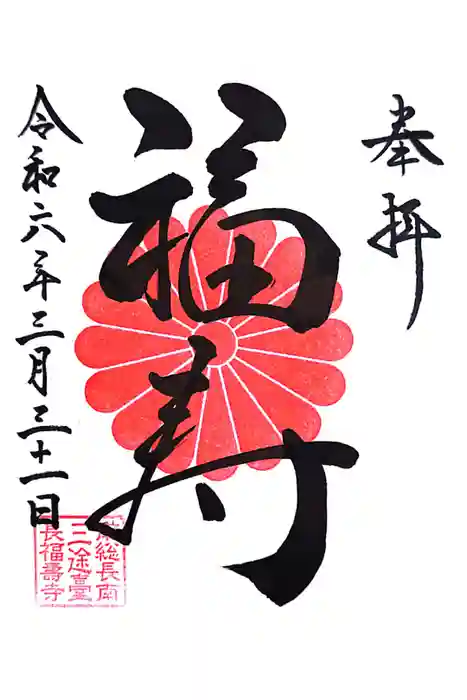 奉拝
福寿
令和六年三月三十一日
総長南
三途臺
長福壽寺